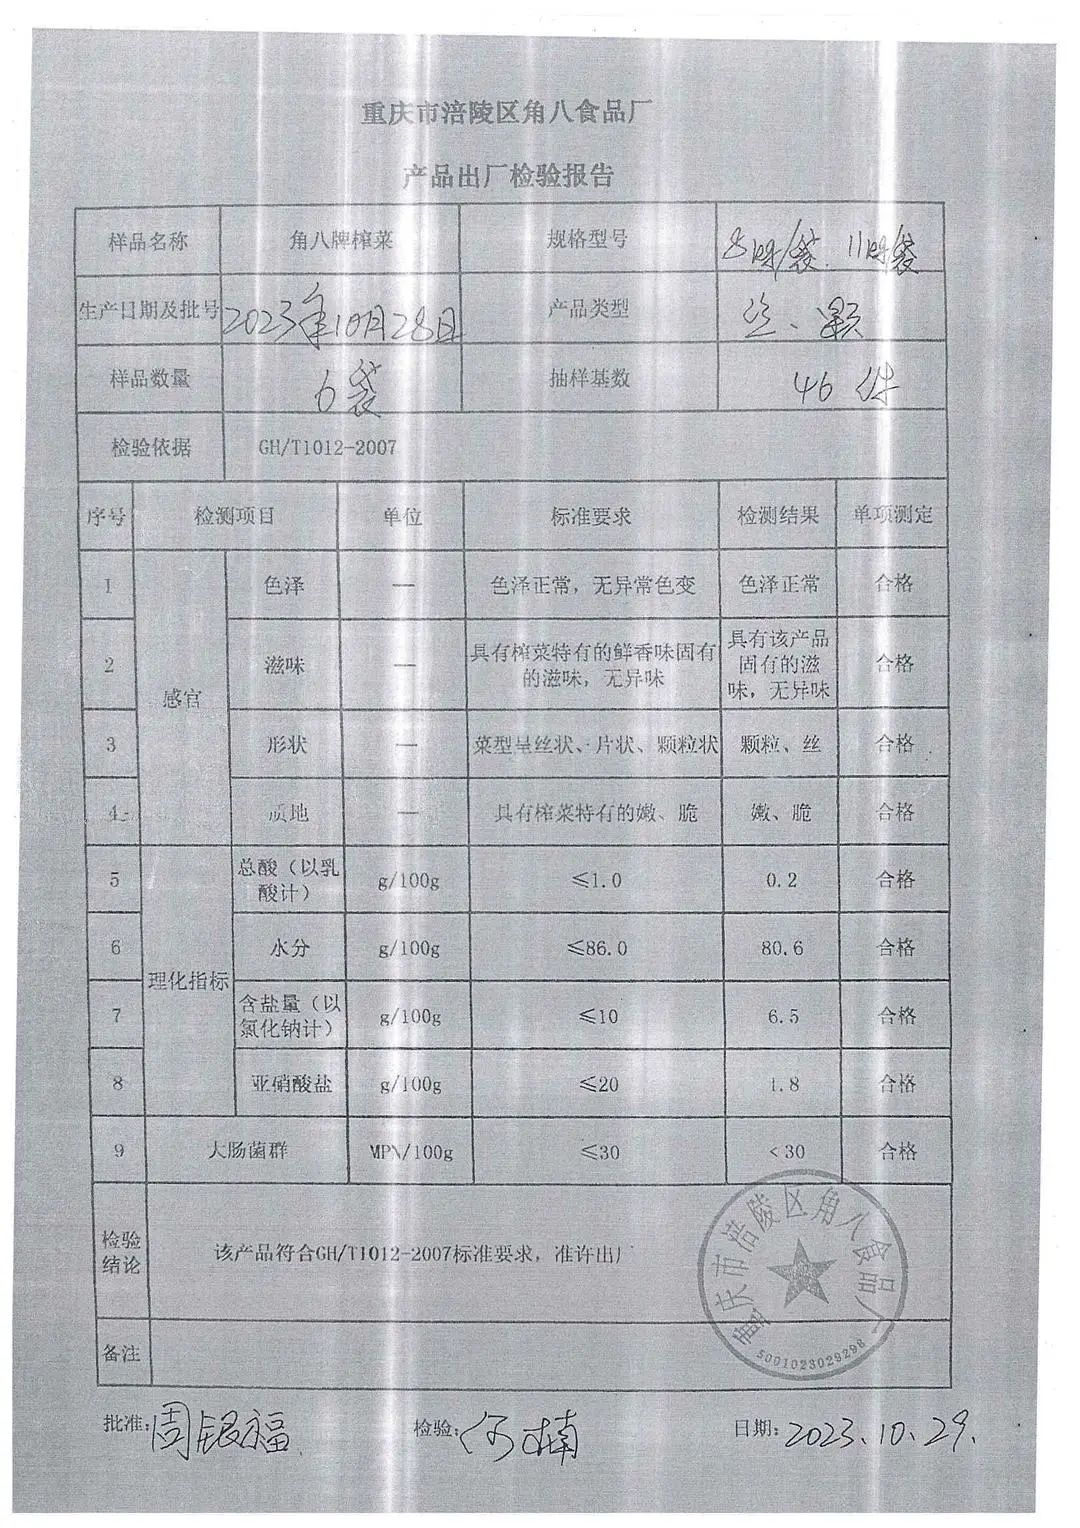 重庆市涪陵区角八食品厂
产品出厂检验报告
样品名称 角八牌榨菜 规格型号
生产日期及批号 2023年10月28日 产品类型 丝、颗
样品数量 6袋 抽样基数 46件
检验依据 GH/T1012-2007
序号 检测项目 单位 标准要求 检测结果 单项测定
感官
1 色泽 — 色泽正常，无异常色变 色泽正常 合格
2 滋味 — 具有榨菜特有的鲜香味固有
的滋味，无异味
具有该产品
固有的滋
味，无异味
合格
3 形状 — 菜型呈丝状、片状、颗粒状 颗粒、丝 合格
4 质地 — 具有榨菜特有的嫩、脆 嫩、脆 合格
理化指标
5 总酸（以乳
酸计）
g/100g ≤1.0 0.2 合格
6 水分 g/100g ≤86.0 80.6 合格
7 含盐量（以
氯化钠计）
g/100g ≤10 6.5 合格
8 亚硝酸盐 g/100g ≤20 1.8 合格
9 大肠菌群 MPN/100g ≤30 <30 合格
检验
结论
该产品符合GH/T1012-2007标准要求，准许出厂
重庆市涪陵区角八食品厂
5001023029298
备注
批准：周银福 检验：何楠 日期：2023.10.29.